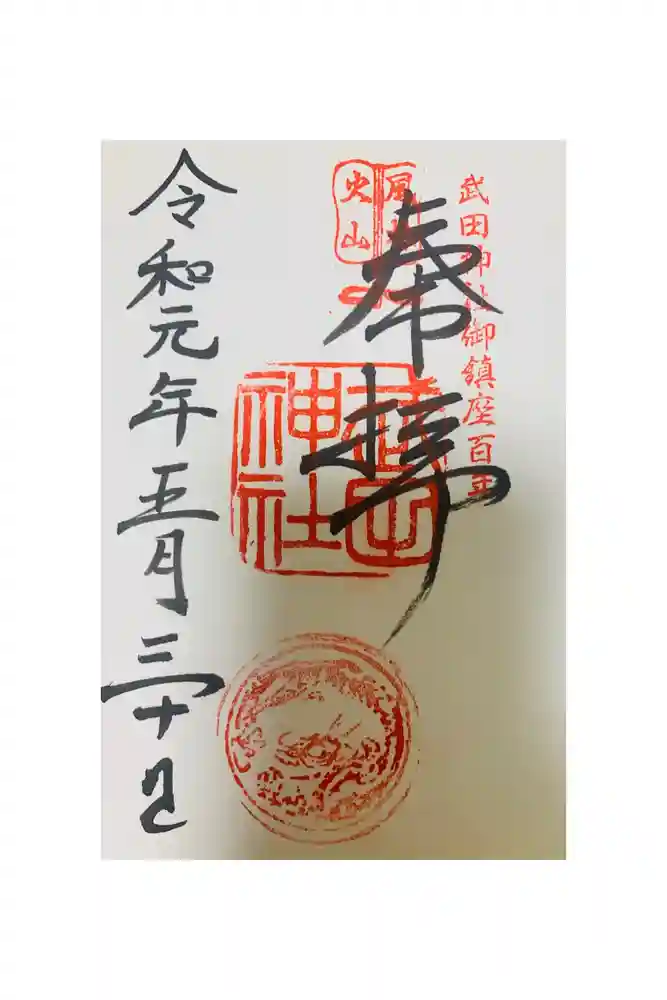 武田神社御鎮座百年
奉拝
風林
火山
武田
神社
令和元年五月三十日